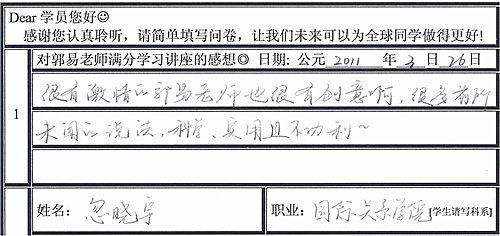 Dear 学员您好☺
感谢您认真聆听，请简单填写问卷，让我们未来可以为全球同学做得更好！
对郭易老师满分学习讲座的感想◎ 日期：公元 2011 年 3 日 26 日
1
很有激情的郭易老师也很有创意啊，很多前所
未闻的说法，科学、实用且不功利~
姓名：忽晓宇 职业：国际关系学院 [学生请写科系]